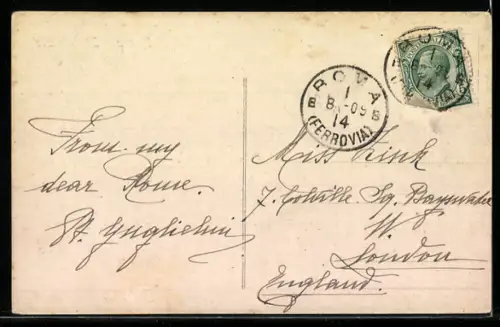 ROMA
1
8-09
14
(FERROVIA)
ROMA
From my
dear Rome.
Miss Kink
7. Colville Sq. Bayswater
W.
London
England.